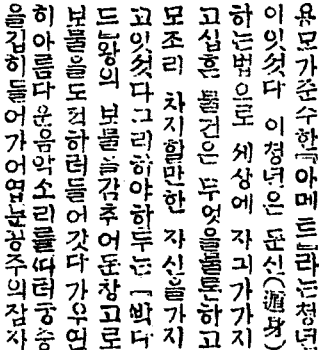 용모가준수한「아메드」라는청년
이잇섯다 이청년은 둔신(遁身)
하는법으로 세상에 자긔가가지
고십흔 물건은 무엇을물론하고
모조리 차지할만한 자신을가지
고잇섯다그리하야하두는「박다
드」왕의 보물을감추어둔창고로
보물을도적하러들어갓다가우연
히아름다운음악소리를ᄯᅡ러궁중
을깁히들어가어엽분공주의잠자